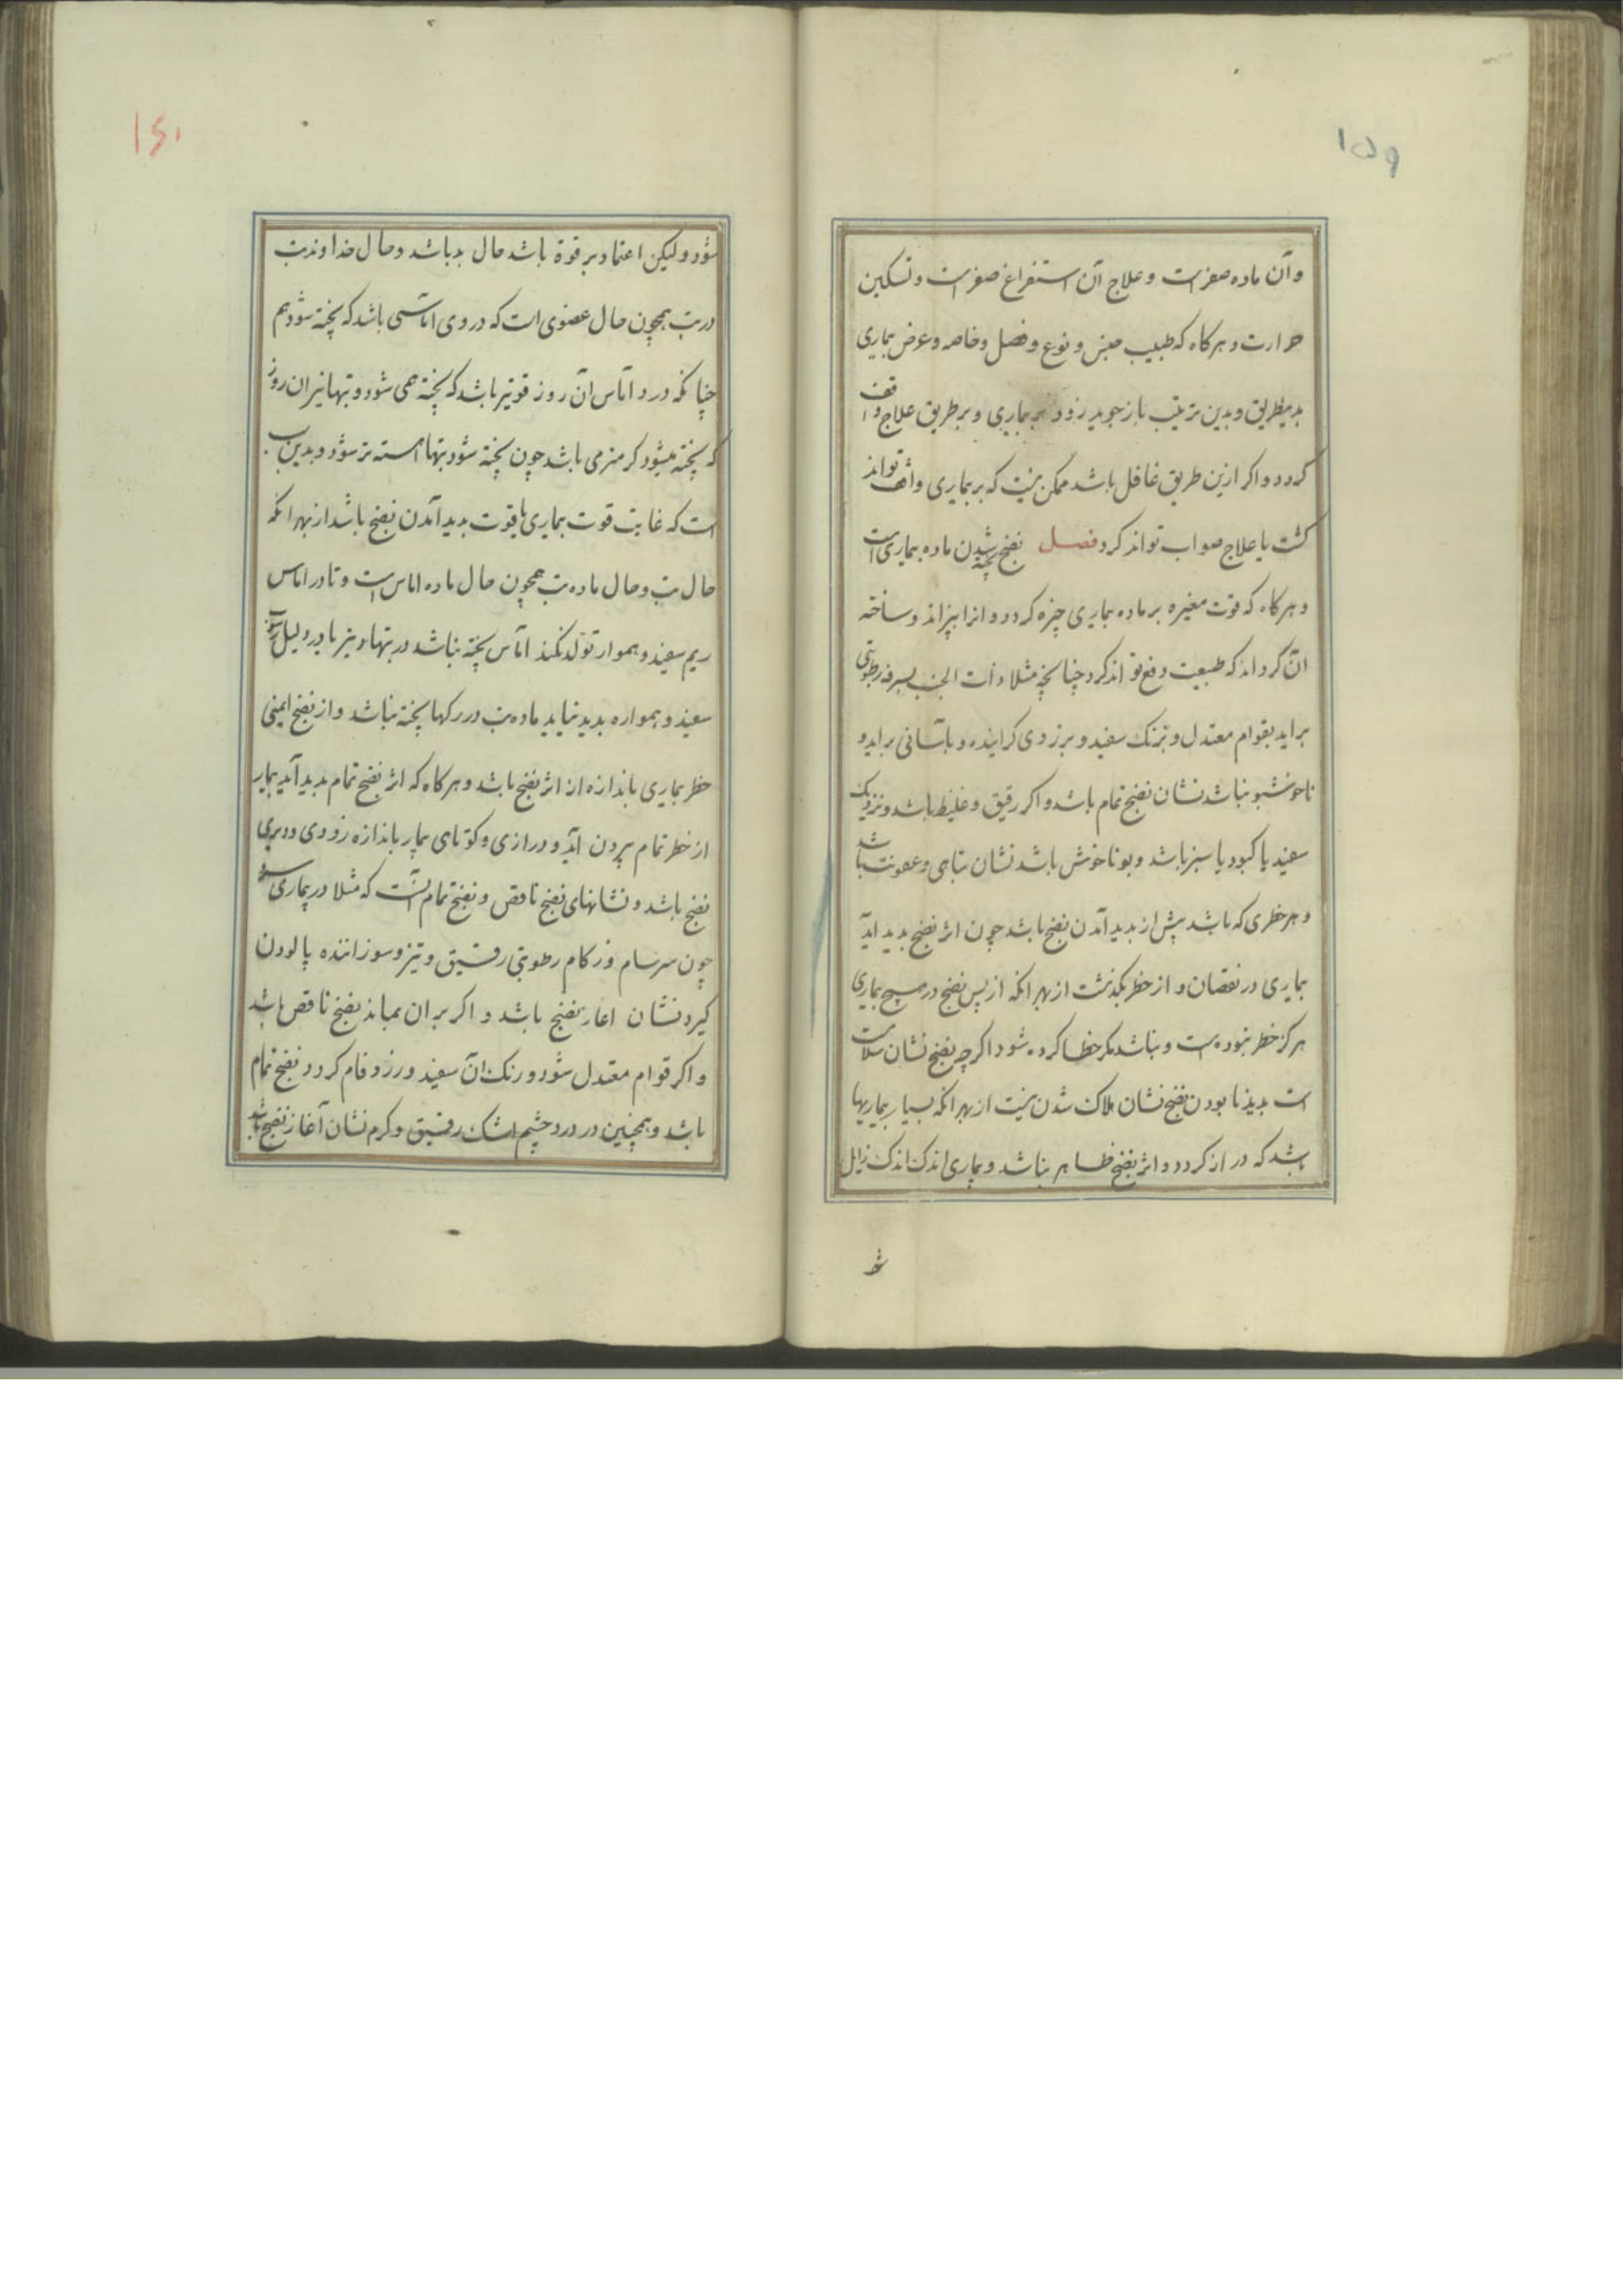 ۱۵۹
وآن ماده صفراست وعلاج آن استفراغ صفراست وتسکین
حرارت وهرکاه که طبیب جنس ونوع وفصل وخاصه وعرض بماری
بدینطریق وبدین ترتیب بازجوید زود بر بماری وبرطریق علاج واقف
کردد واکر ازین طریق غافل باشد ممکن نیست که بربماری واقف تواند
کشت یا علاج صواب تواند کرد فصل نضج پخته شدن ماده بیماری است
وهرکاه که قوت مغیره برماده بماری چیزه کردد وانرا بپزاند وساخته
آن کرداند که طبیعت دفع تواند کرد چنانچه مثلا ذات الجنب بسرفه رطوبتی
براید بقوام معتدل وبرنک سفید وبرزدی کراینده وبآسانی براید و
ناخوشبو نباشد نشان نضج تمام باشد واکر رقیق وغلیظ باشد ونزدیک
سفید یا کبود یا سبز باشد وبو ناخوش باشد نشان تباهی وعفونت باشد
وهرخطری که باشد پیش از بدید آمدن نضج باشد چون اثر نضج بدید اید
بماری در نقصان و از خطر بکذشت ازبهرانکه ازپس نضج درهیچ بماری
هرکز خطر نبوده ست ونباشد مکرخطا کرده شود اکرچه نضج نشان سلامت
است بدیدنا بودن نضج نشان هلاک شدن نیست ازبهرانکه بسیار بیماریها
باشد که دراز کردد واثر نضج ظاهر نباشد وبماری اندک اندک زایل
شو
۱۶۰
شود ولیکن اعتماد برقوة باشد حال بدباشد وحال خداوندتب
درتب همچون حال عضوی است که در وی اماسی باشد که پخته شود هم
چنانکه درد اماس ان روز قویتر باشد که پخته همی شود وتبها نیز ان روز
که پخته میشود کرمترمی باشد چون پخته شود تبها اهسته تر شود وبدین
است که غایت قوت بماری باقوت بدید آمدن نضج باشد ازبهرانکه
حال تب وحال ماده تب همچون حال ماده اماس است وتا در اماس
ریم سفید وهموار تولد نکند اماس پخته نباشد درتبها نیز تا در دلیل رسوب
سفید وهمواره بدید نیاید ماده تب دررکها پخته نباشد واز نضج ایمنی
خطر بماری باندازه از اثر نضج باشد وهرکاه که اثر نضج تمام بدید آید بیمار
از خطر تمام بیرون آید ودرازی وکوتاهی بیمار باندازه زودی ودیری
نضج باشد ونشانهای نضج ناقص ونضج تمام آنست که مثلا دربیماری سر
چون سرسام وزکام رطوبتی رقیق وتیز وسوزاننده پالودن
کیرد نشان اغاز نضج باشد واکر بران بماند نضج ناقص باشد
واکر قوام معتدل شود ورنک آن سفید وزرد فام کردد نضج تمام
باشد وهمچنین در درد چشم اشک رقیق وکرم نشان آغاز نضج باشد